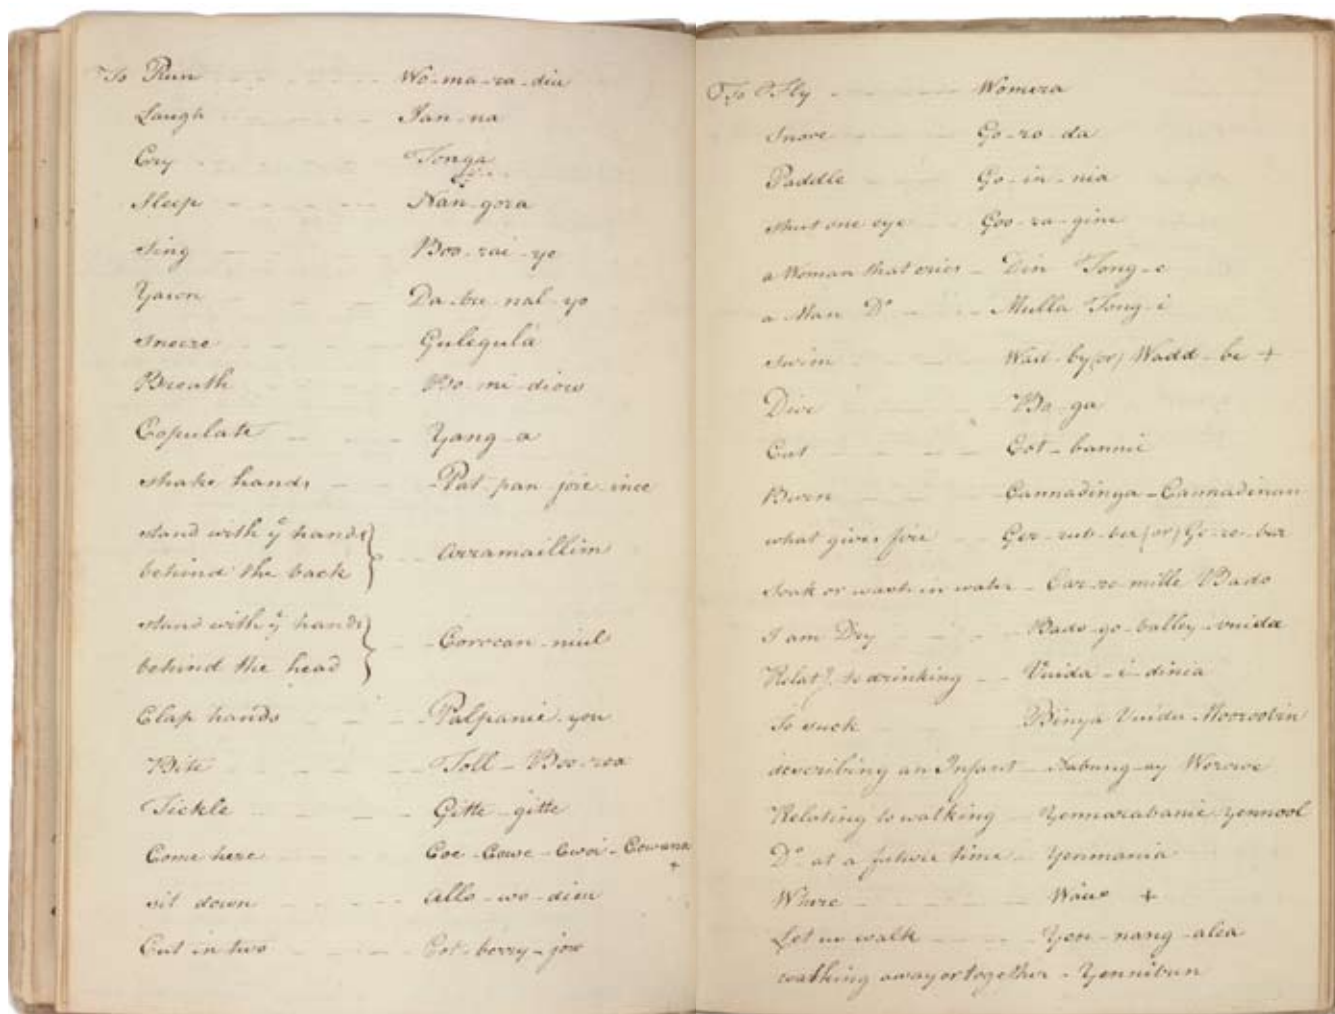 To Run - - - - - Wo-ma-ra-diu
Laugh - - - - - Jan-na
Cry - - - - - Tonga
Sleep - - - - - Nan-gora
Sing - - - - - Boo-rai-ye
Yawn - - - - - Da-bu-nal-yo
Sneeze - - - - - Gulegulà
Breath - - - - -
Copulate - - - - - Yang-a
shake hands - - - - - Pat-pan-joie-ince
stand with ye hands
behind the back } - - Arramaillim
stand with ye hands
behind the head } - - Corocan-niul
Clap hands - - - - - Palpanie-you
Bite - - - - - Toll-Boo-roa
Tickle - - - - - Gitte-gitte
Come here - - - - - Coe-Cowe-Cwoi-Cowana +
sit down - - - - - allo-wo-diu
Cut in two - - - - - Cot-berry-jow
To Fly - - - - - Womera
Snore - - - - - Go-ro-da
Paddle - - - - - Go-in-nia
shut one eye - - - - - Goo-ra-gine
a Woman that cries - Din Tong-e
a Man Do - - - - - Mulla Tong-i
swim - - - - - Wad-by (or) Wadd-be +
Dive - - - - - Bo-ga
Cut - - - - - Cot-bannie
Burn - - - - - Cannadinga-Cannadinan
what gives fire - - Ger-rub-ber (or) Ge-re-bar
Soak or wash in water - Car-re-mille Bado
I am Dry - - - - - Bado-go-balley-vuida
Relatg. to drinking - - Vuida-i-dinia
To suck - - - - - Binya Vuidu Mooroobin
describing an Infant - Nabung-ay Werowe
Relating to walking - Yenmarabanie-Yennool
Do at a future time - Yenimania
Where - - - - - Wàu +
Let us walk - - - - - Yen-nang-alea
walking away or together - Yennibun